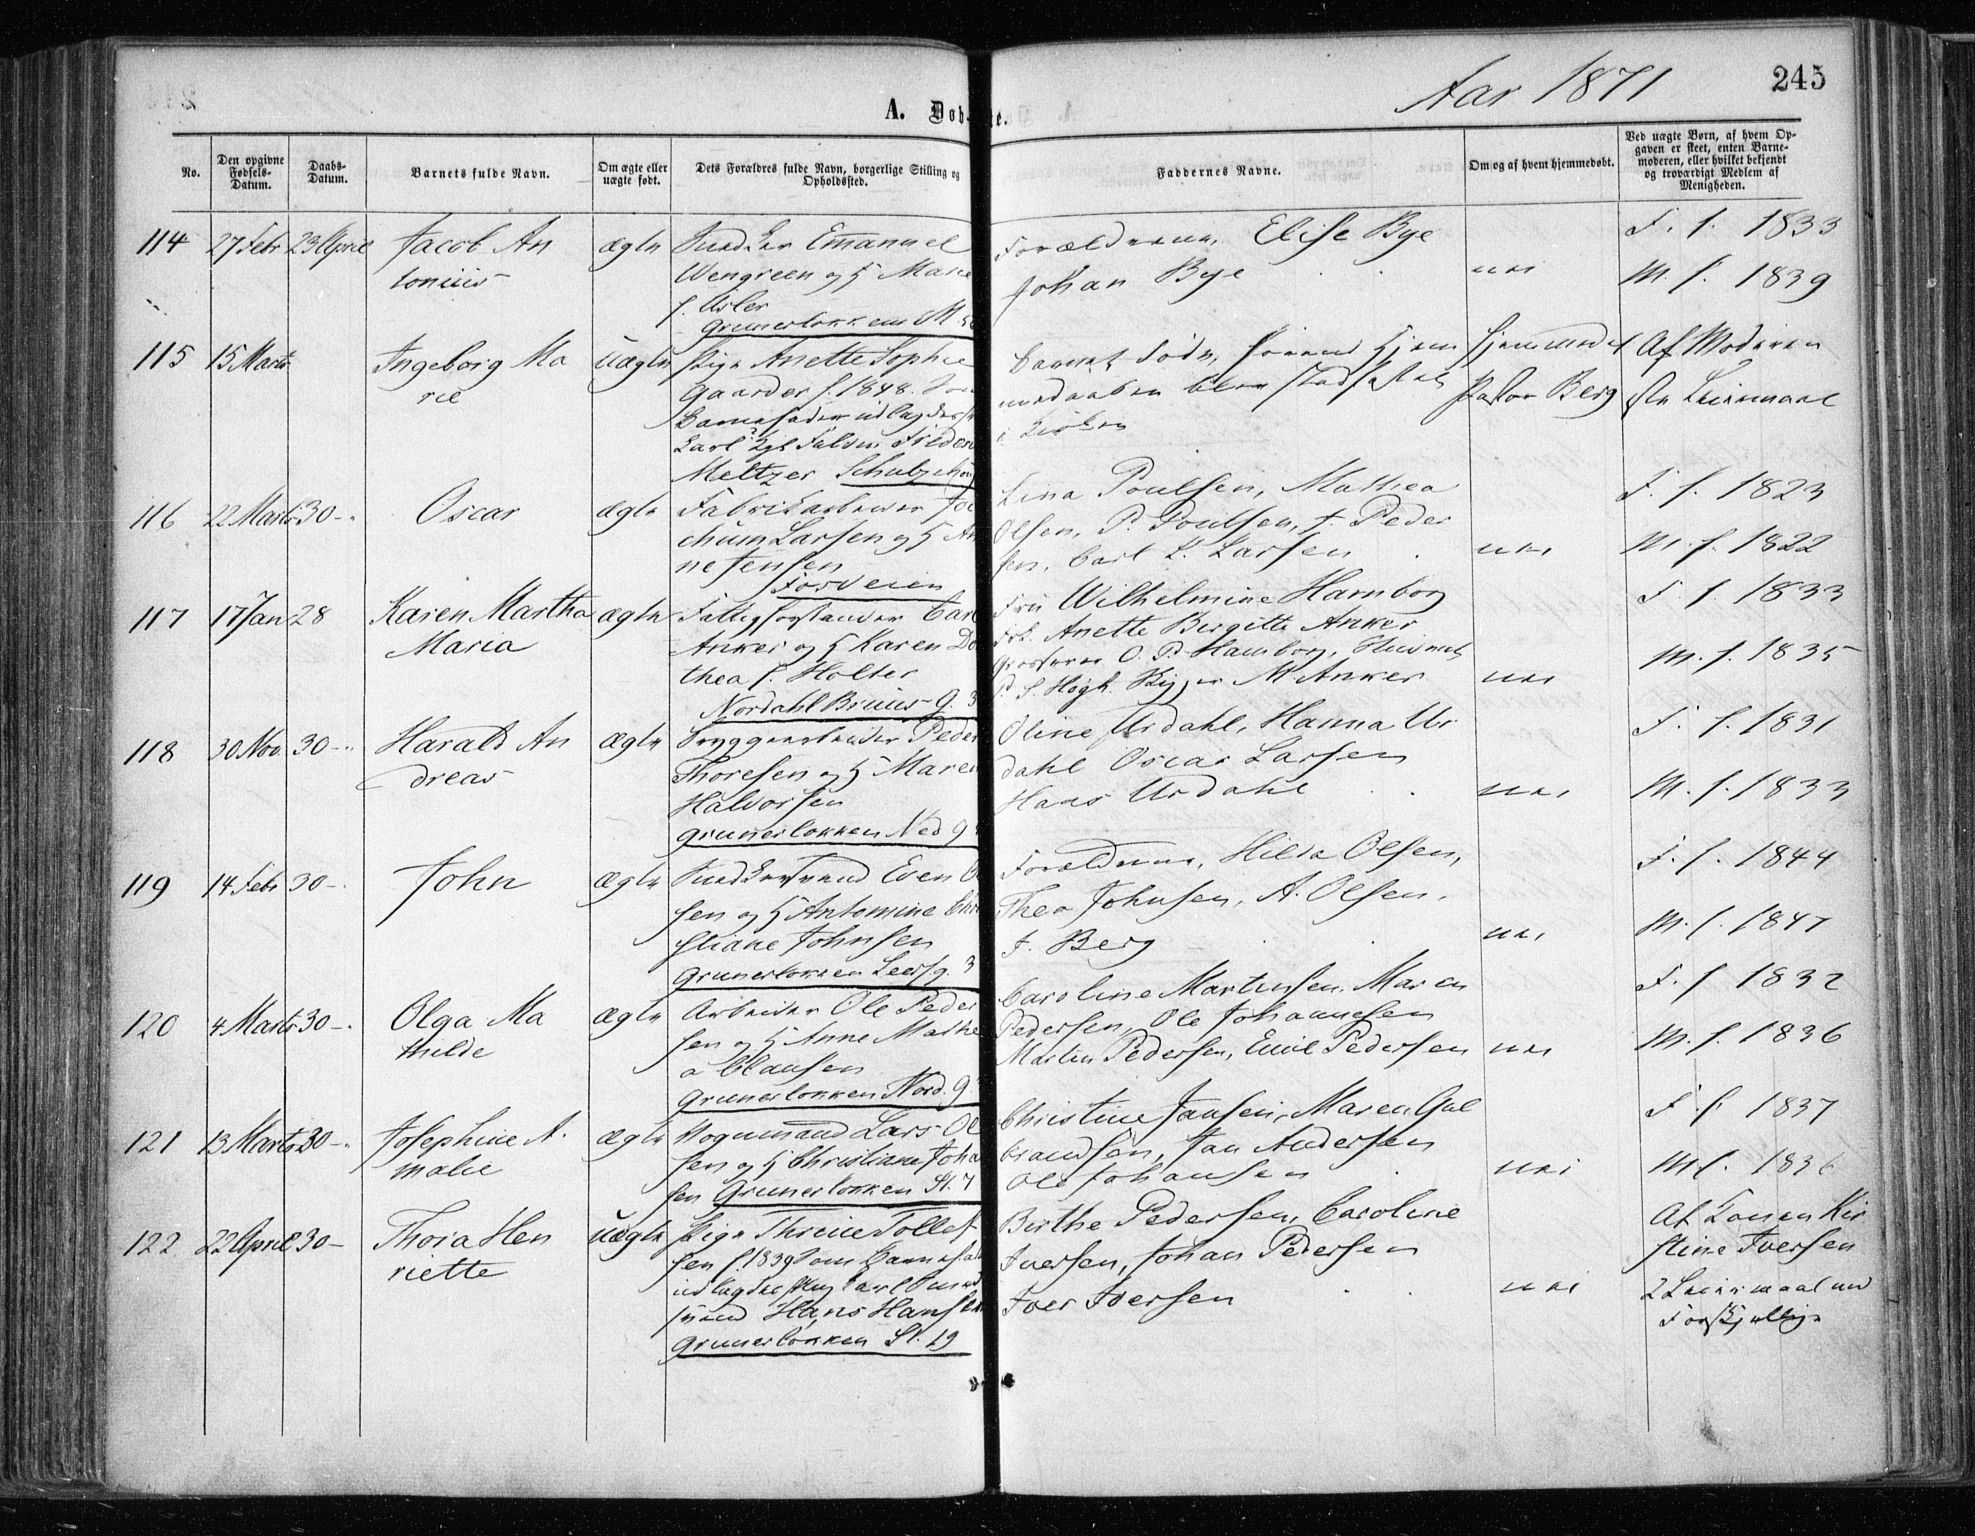 Aar 1871
245
A. Døbte.
No.
Den opgivne Fødsels-Datum.
Daabs-Datum.
Barnets fulde Navn.
Om ægte eller uægte født.
Dets Forældres fulde Navn, borgerlige Stilling og Opholdssted.
Faddernes Navne.
Om og af hvem hjemmedøbt.
Ved uægte Børn, af hvem Opgaven er skeet, enten Barnemoderen, eller hvilket bekjendt og troværdigt Medlem af Menigheden.
114 27 Febr 23 April Jacob An ægte Emanuel
tonius Wengreen og H Marie
f. Asler
Grunerløkken
Forældrene, Elise Bye
Johan Bye nei
F. f. 1833
M. f. 1839
115 15 Marts Ingeborg Ma uægte Pige Anette Sophie
rie Gaarder f. 1848. Som
Barnefader udlagdes
Carl
Meltzer
Barnet døde, førend Hjem
medaaben blev stadfæstet
i Kirken
Hjemmedøbt
Pastor Berg
Af Moderen
Leiermaal
116 22 Marts 30 Oscar ægte Fabrikarbeider Joc
chum Larsen og H An
ne Jensen
Fosveien
Lina Poulsen, Mathea
Olsen, P. Poulsen, J. Peder
sen, Carl L. Larsen nei
F. f. 1823
M. f. 1822
117 17 Jan 28 Karen Martha ægte Fattigforstander Carl
Maria Anker og H Karen Do
thea f. Holter
Nordahl Bruns G. 3
Fru Wilhelmine Hamborg
Frk. Anette Birgitte Anker
O. P. Hamborg,
P. S. Høgh. M Anker nei
F. f. 1833
M. f. 1835
118 30 Nov. 30 Harald An ægte Bryggearbeider Peder
dreas Thoresen og H Maren
Halvorsen
Grunerløkken Ned G
Oline Urdahl, Hanna Ur
dahl Oscar Larsen
Hans Urdahl nei
F. f. 1831
M. f. 1833
119 14 Febr 30 John ægte Even Ol
sen og H Antomine Chri
stiane Johnsen
Grunerløkken Leersg. 3
Forældrene, Hilda Olsen,
Thea Johnsen, A. Olsen,
J. Berg nei
F. f. 1844
M. f. 1847
120 4 Marts 30 Olga Ma ægte Arbeider Ole Peder
thilde sen og H Anne Mathe
a Clausen
Grunerløkken Nord. G
Caroline Martinsen, Maren
Pedersen, Ole Johannesen
Martin Pedersen, Emil Pedersen nei
F. f. 1832
M. f. 1836
121 13 Marts 30 Josephine A. ægte Vognmand Lars Ol
malie sen og H Christiane Joha
sen Grunerløkken St. 7
Christine Jansen, Maren Gul
brandsen, Jan Andersen
Ole Johansen nei
F. f. 1837
M f. 1836
122 22 April 30 Thora Hen uægte Pige Threne Tollef
riette sen f. 1839 som Barnefader
udlagdes Carl
svend Hans Hansen
Grunerløkken St. 19
Birthe Pedersen, Caroline
Iversen, Johan Pedersen
Iver Iversen nei
Af Konen Kir
stine Iversen
2 Leiermaal med
Forskjellig